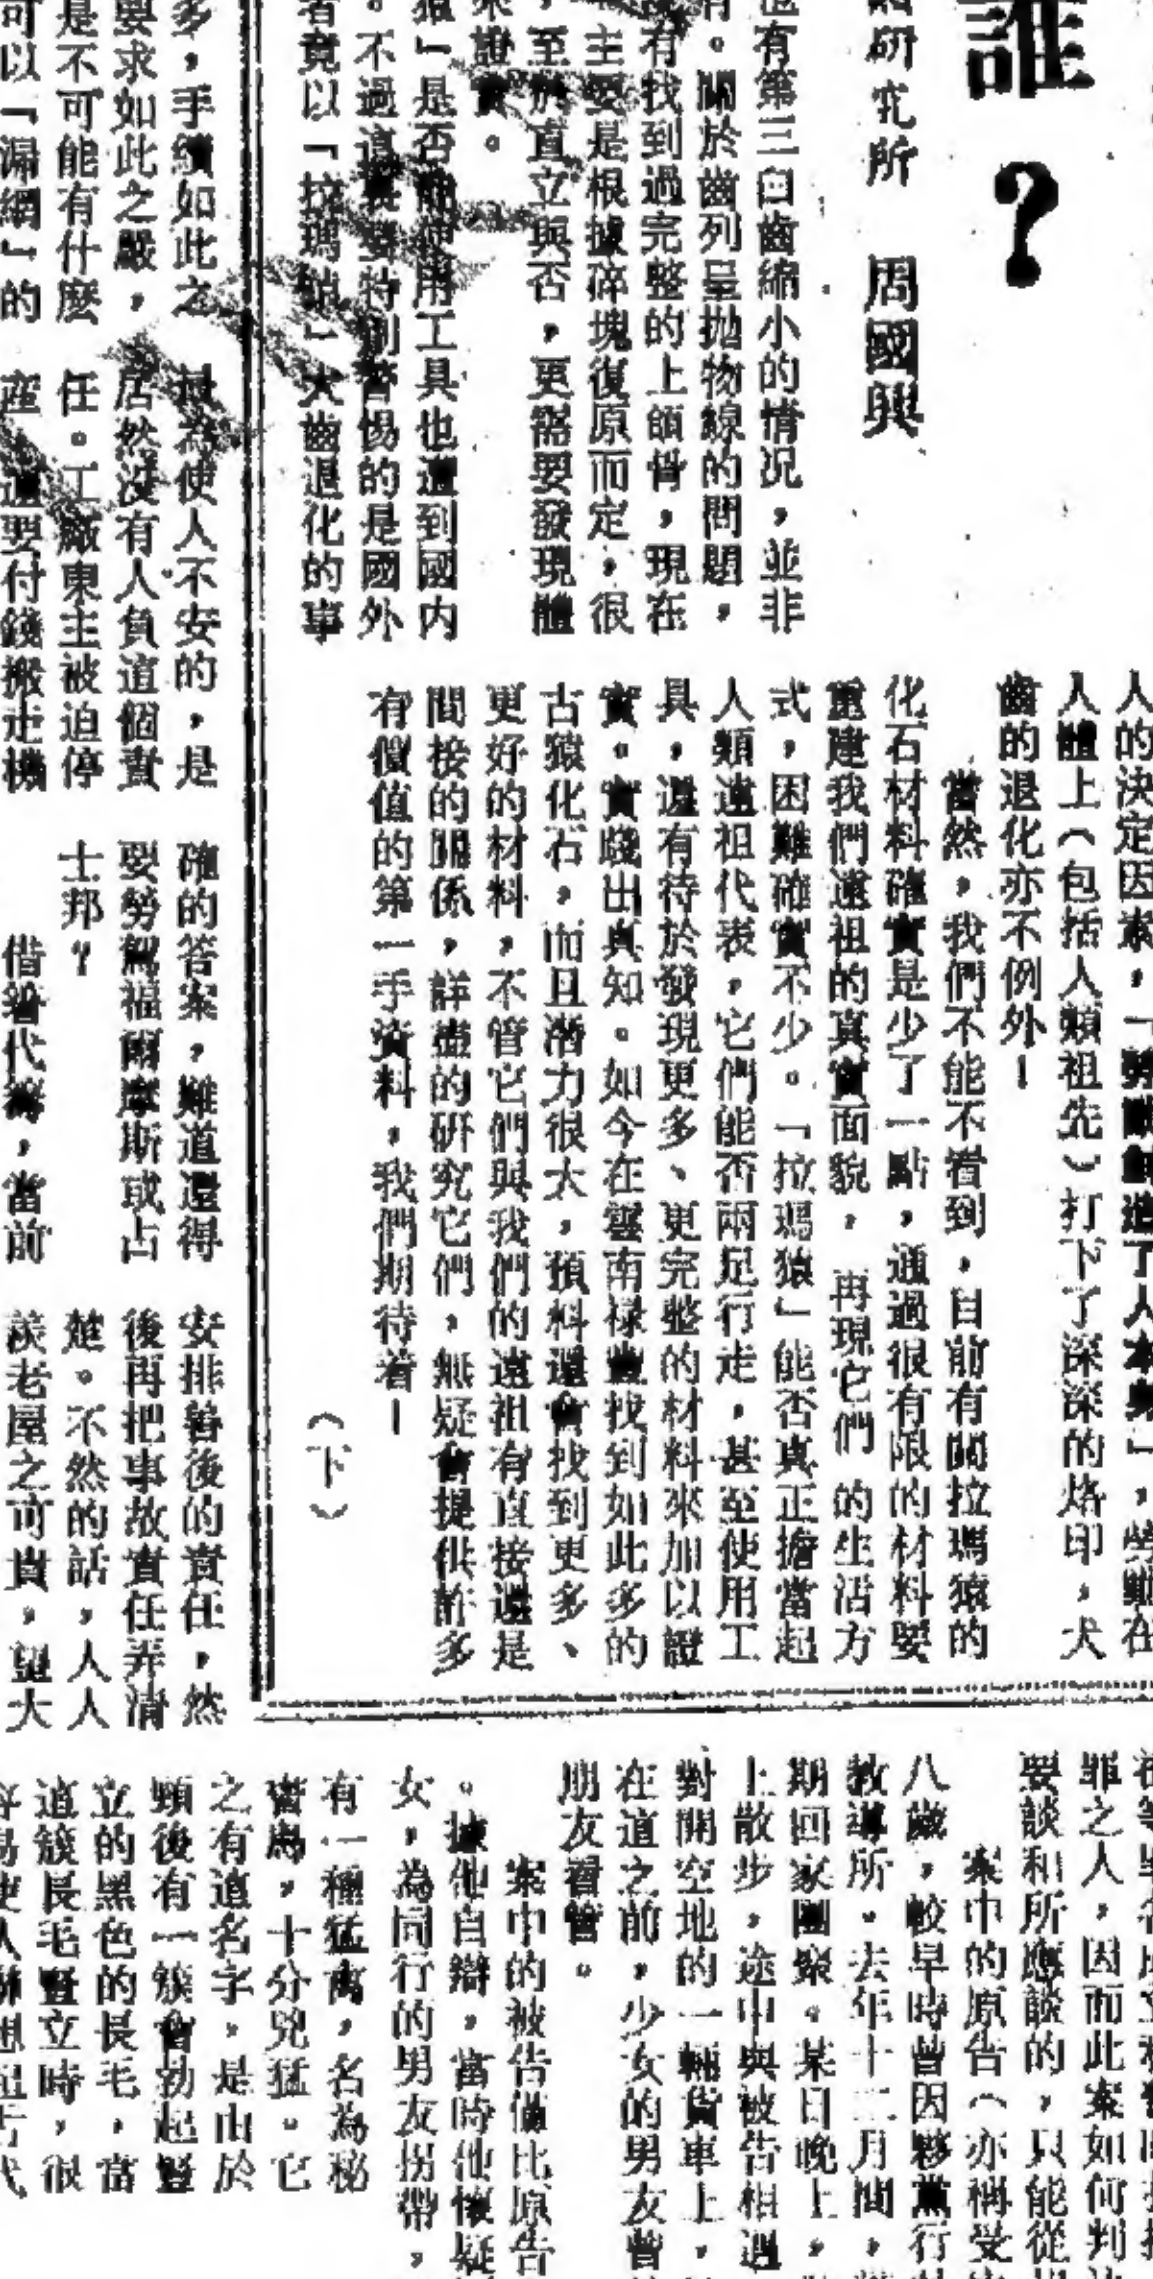 誰？
研究所　周國興
有第三臼齒縮小的情况，並非
。關於齒列呈拋物線的問題，
有找到過完整的上頜骨，現在
主要是根據碎塊復原而定，很
，至於直立與否，更需要發現體
來證實。
」是否能使用工具也遭到國内
。不過這裏要特別警惕的是國外
者竟以「拉瑪猿」犬齒退化的事
人的決定因素，「勞動創造了人本身」，勞動在
人體上（包括人類祖先）打下了深深的烙印，犬
齒的退化亦不例外！
當然，我們不能不看到，目前有關拉瑪猿的
化石材料確實是少了一點，通過很有限的材料要
重建我們遠祖的真實面貌，再現它們的生活方
式，困難確實不少。「拉瑪猿」能否真正擔當起
人類遠祖代表，它們能否兩足行走，甚至使用工
具，還有待於發現更多、更完整的材料來加以證
實。實踐出真知。如今在雲南祿豐找到如此多的
古猿化石，而且潛力很大，預料還會找到更多、
更好的材料，不管它們與我們的遠祖有直接還是
間接的關係，詳盡的研究它們，無疑會提供許多
有價值的第一手資料，我們期待着！
（下）
多，手續如此之
要求如此之嚴，
是不可能有什麼
可以「漏網」的
最為使人不安的，是
居然沒有人負這個責
任。工廠東主被迫停
產，還要付錢搬走機
確的答案，難道還得
要勞駕福爾摩斯或占
士邦？
借箸代籌，當前
安排善後的責任，然
後再把事故責任弄清
楚。不然的話，人人
羨老屋之可貴，望大
罪之人，因而此案如何判
要談和所應談的，只能從
案中的原告（亦稱受
八歲，較早時曾因夥黨行
教導所。去年十二月間，
期回家團聚。某日晚上，
上散步，途中與被告相遇
對開空地的一輛貨車上，
在這之前，少女的男友曾
朋友看管。
案中的被告僅比原告
。據他自辯，當時他懷疑
女，為同行的男友拐帶，
有一種猛禽，名為秘
書鳥，十分兇猛。它
之有這名字，是由於
頸後有一簇會勃起豎
立的黑色的長毛，當
這簇長毛豎立時，很
容易使人聯想起古代